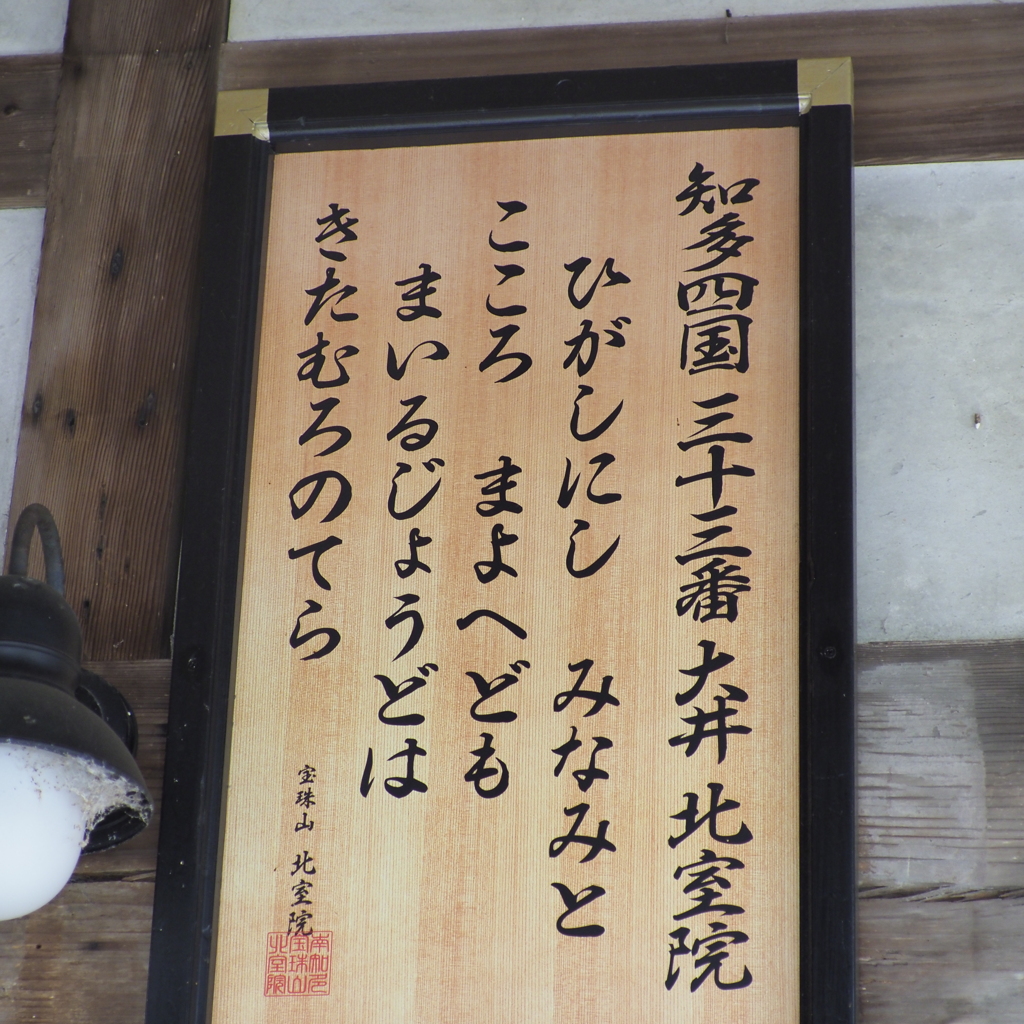 知多四国 三十三番 大井 北室院
ひがしにし みなみと
こころ まよへども
まいるじょうどは
きたむろのてら
宝珠山 北室院
南知多
宝珠山
北室院